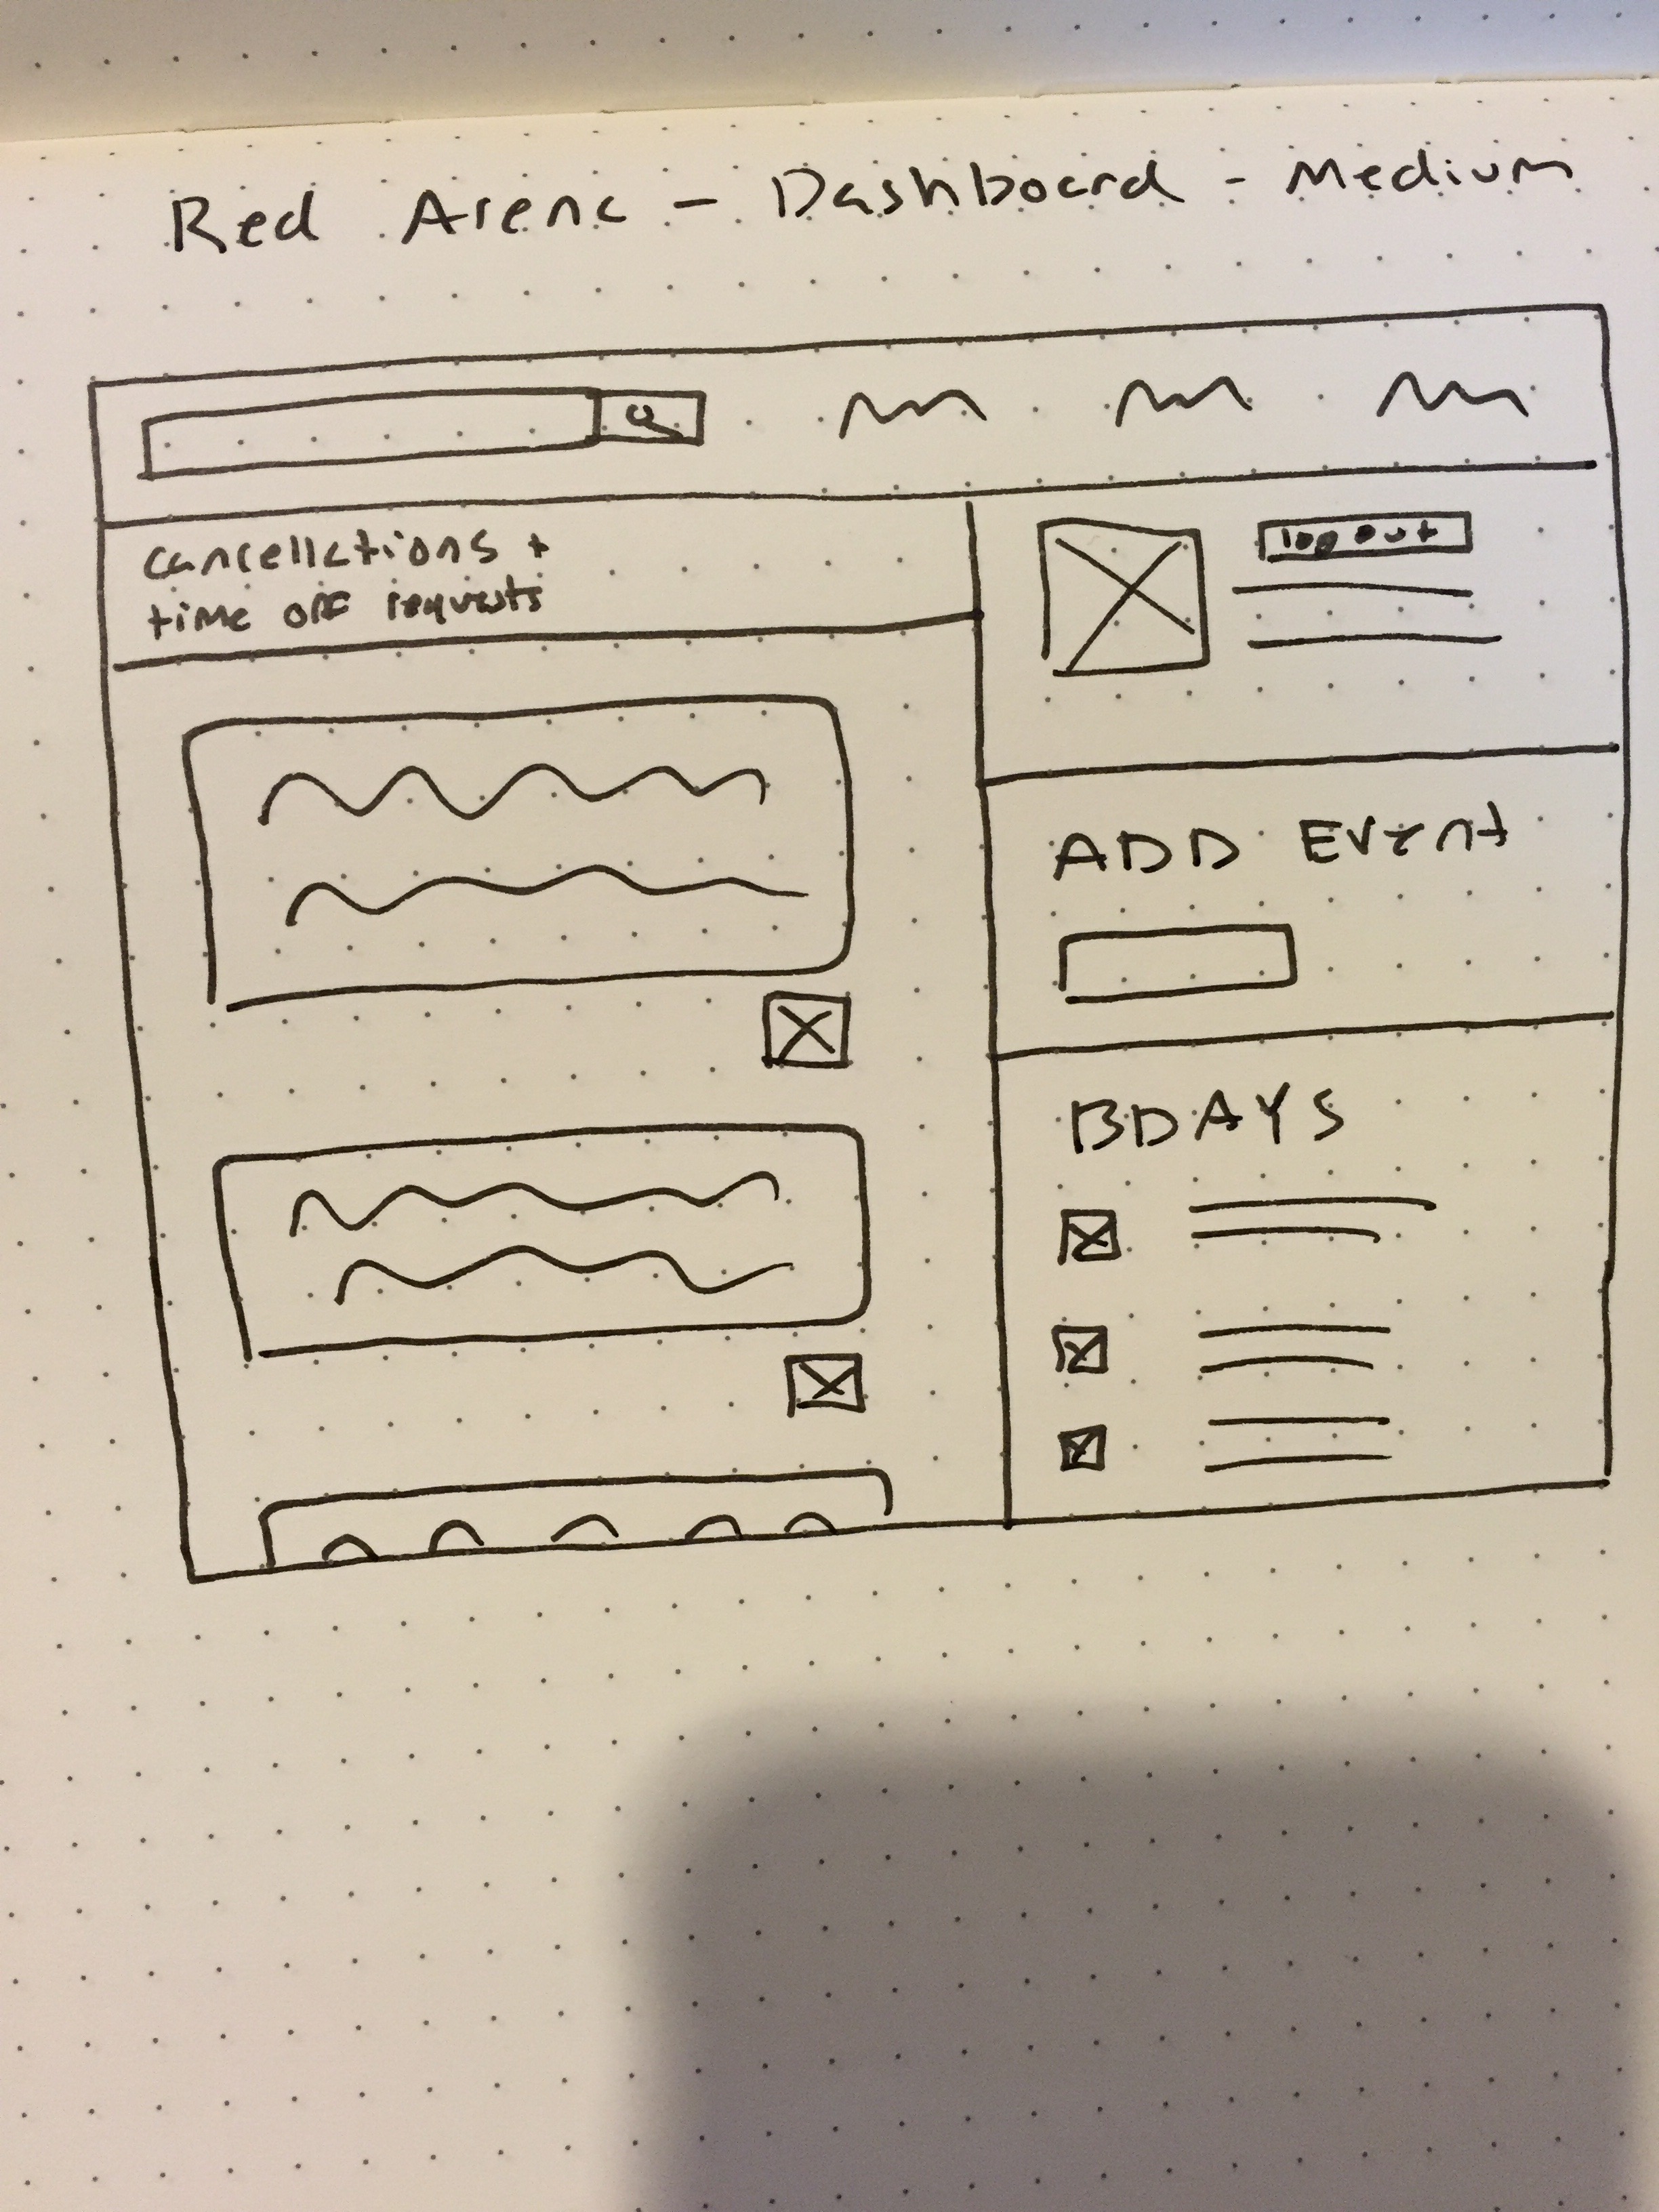 Red Arena - Dashboard - Medium
cancellations +
time off requests
log out
ADD Event
BDAYS